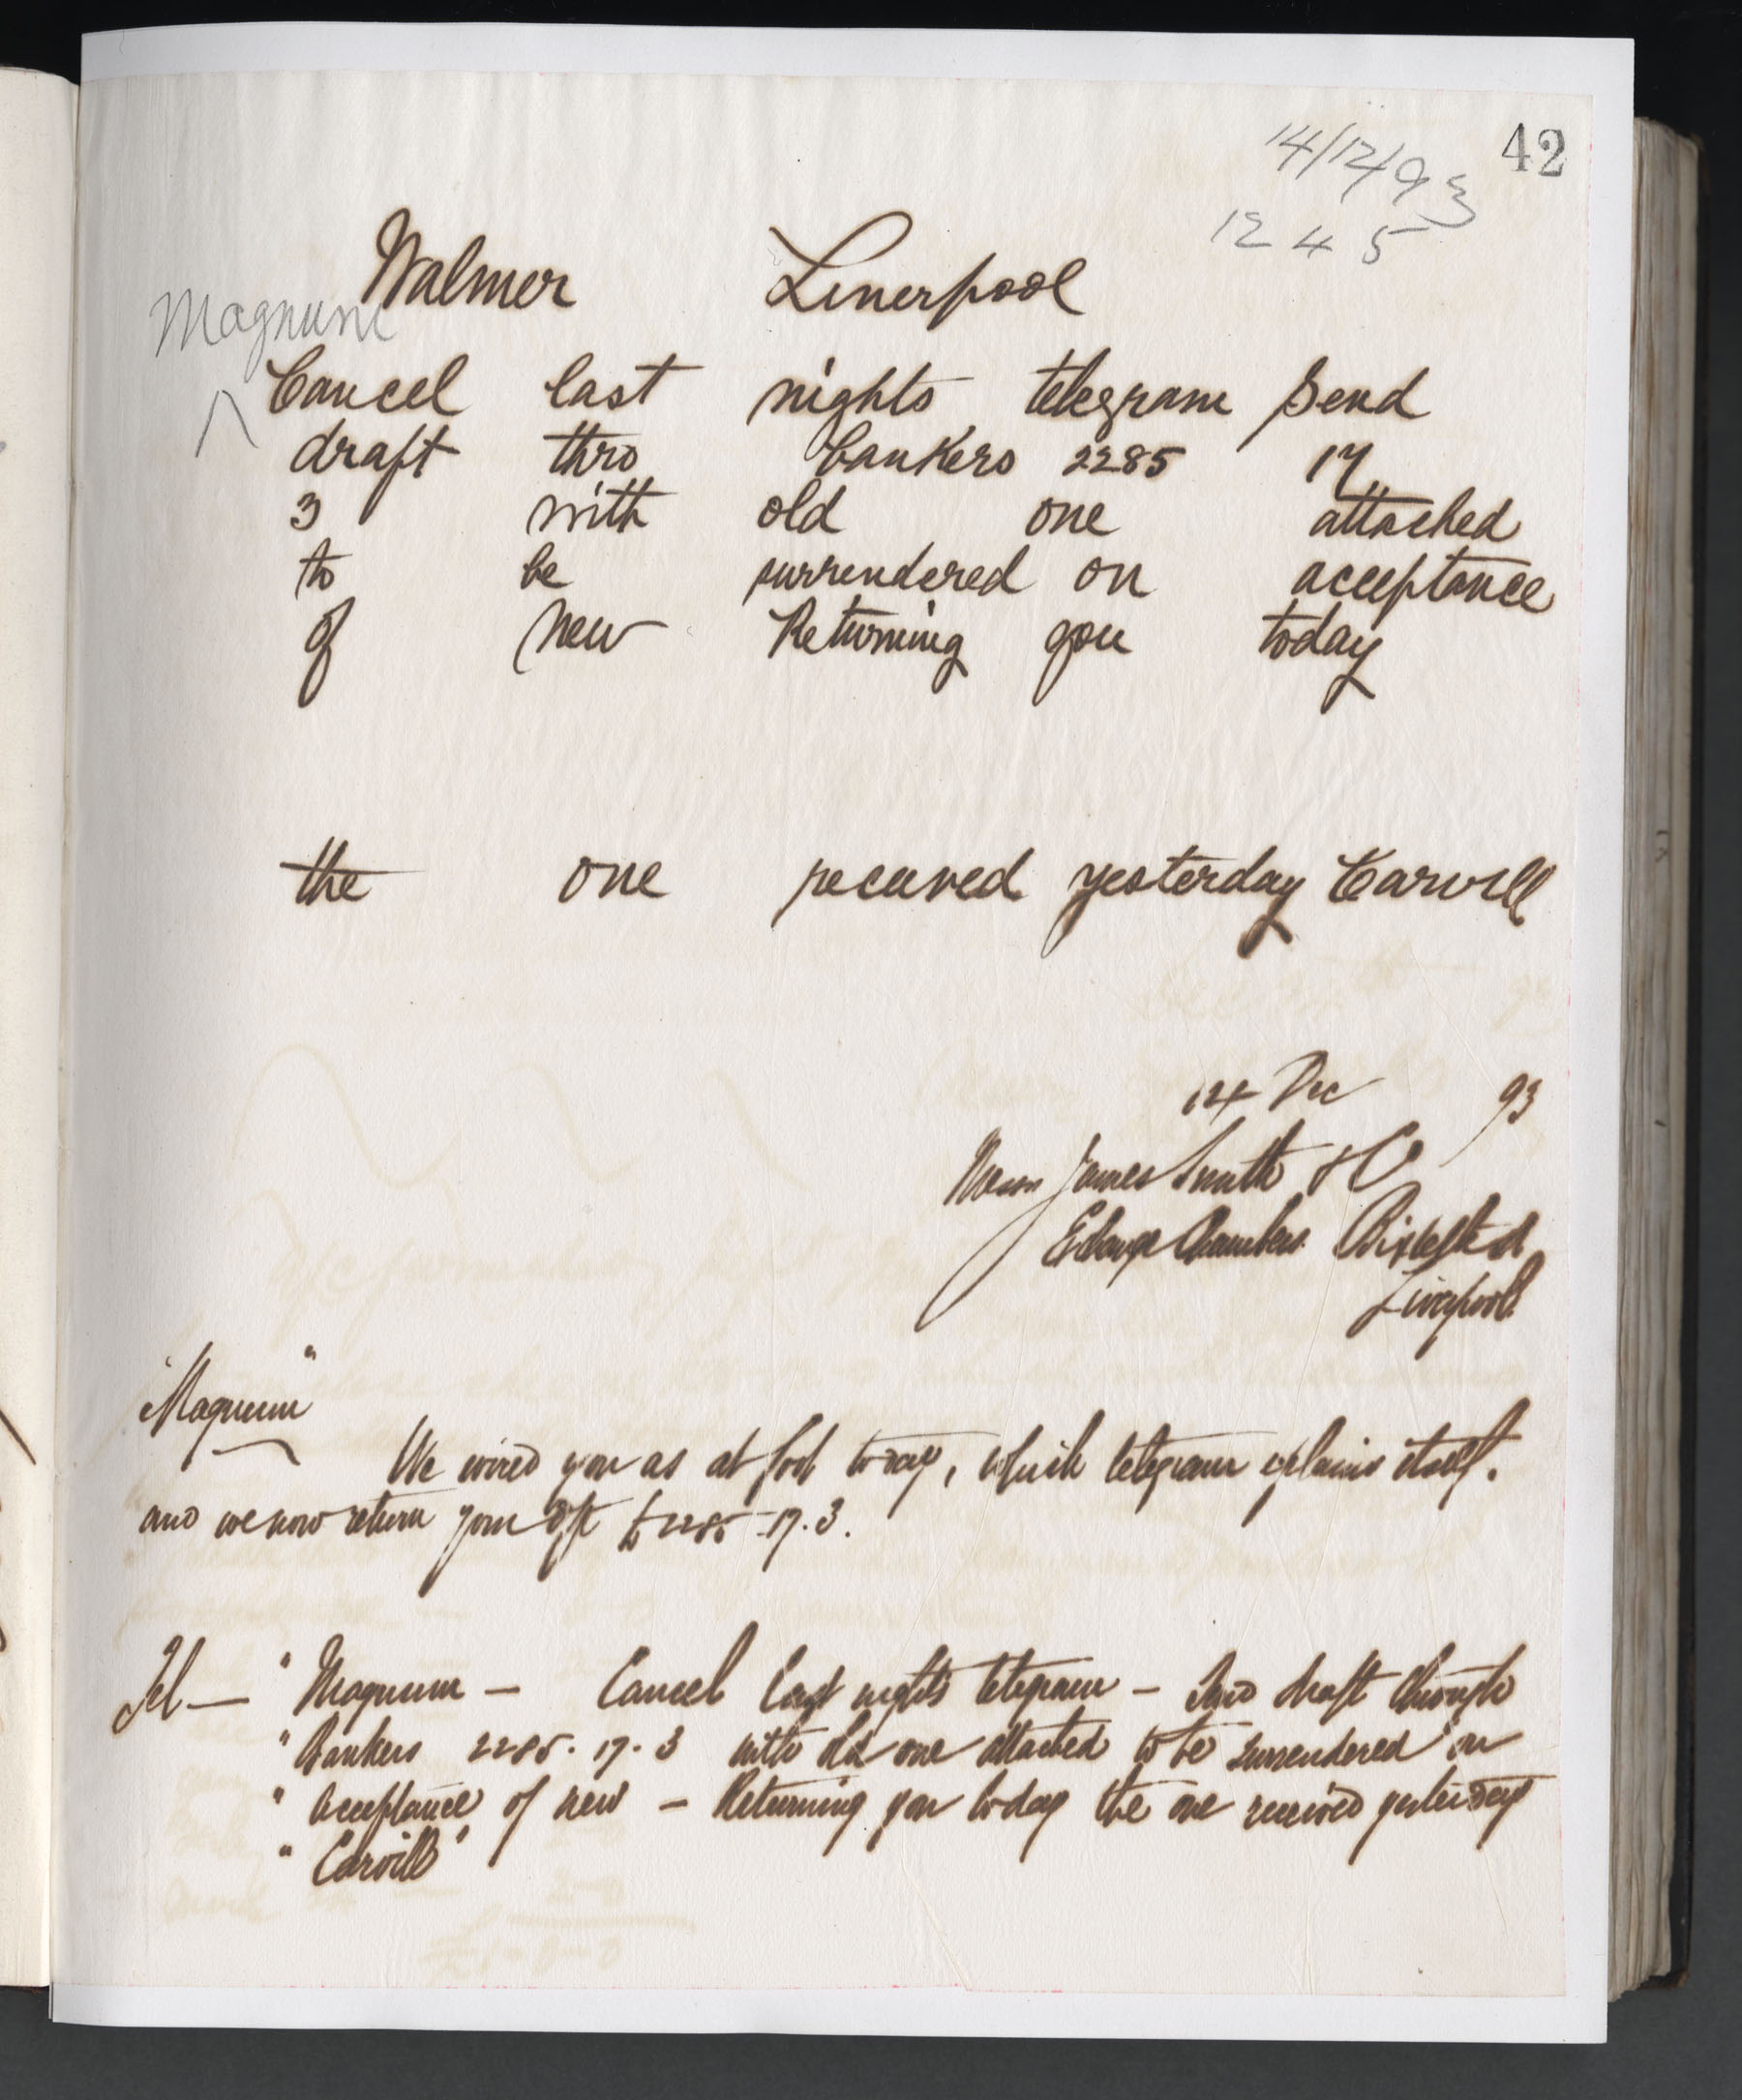 42
14/12/93
12 45
Walmer Liverpool
Magnum
Cancel last nights telegram Send
draft thro bankers 2285 17
3 with old one attached
to be surrendered on acceptance
of new Returning you today
the one received yesterday Carvill
14 Dec 93
Messrs James Smith & Co
Exchange Chambers Bixteth St
Liverpool
"Magnum"
We wired you as at foot today, which telegram explains itself.
and we now return your dft £2285-17.3.
Tel — " Magnum — Cancel last nights telegram — Send draft through
" Bankers 2285. 17. 3 with old one attached to be surrendered on
" Acceptance of new — Returning you today the one received yesterday
" Carvill"